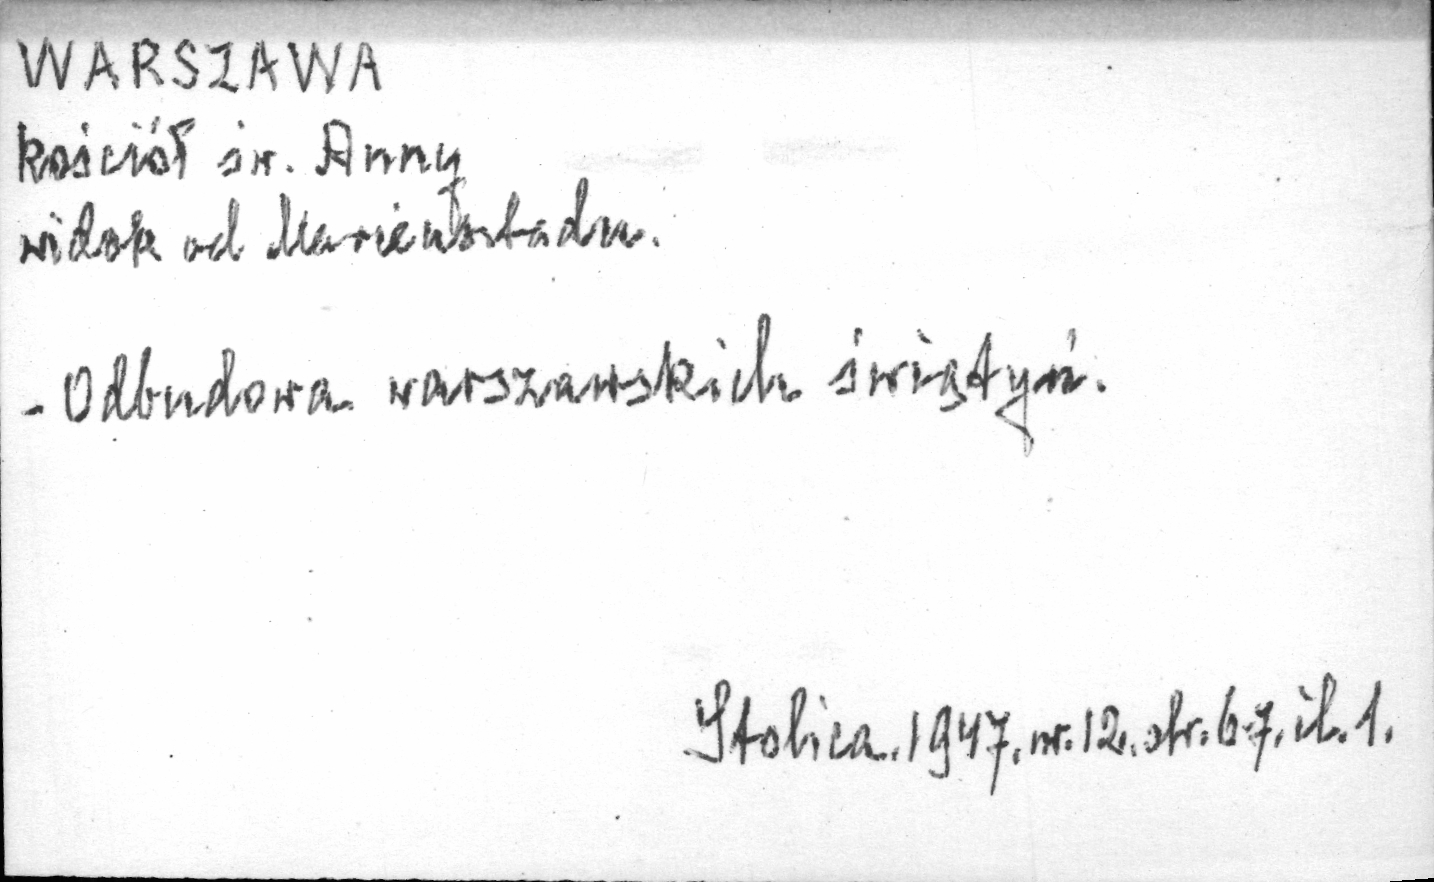 WARSZAWA
kościół św. Anny
widok od Marienstadu.
- Odbudowa warszawskich świątyń.
Stolica. 1947. nr. 12. str. 6-7. il. 1.